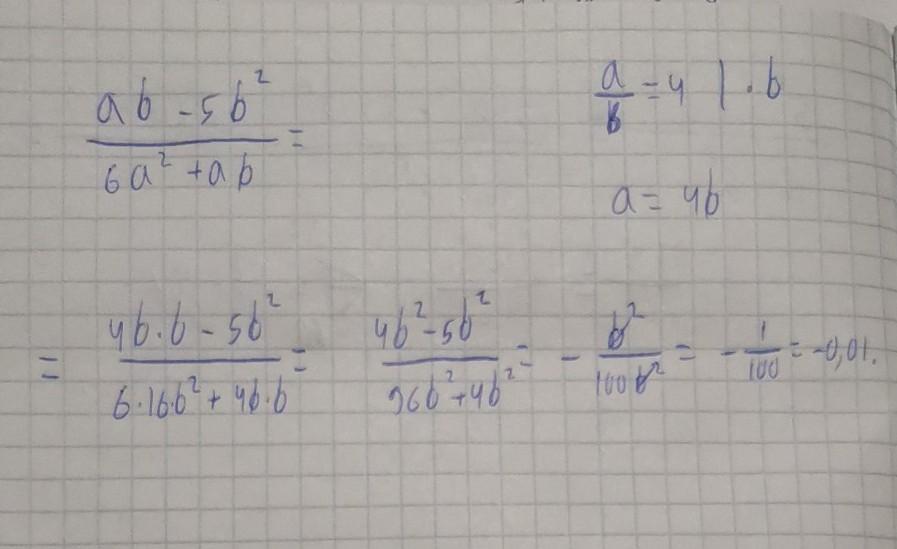 (ab - 5b²)/(6a² + ab) =
a/b = 4 | · b
a = 4b
= (4b·b - 5b²)/(6·16·b² + 4b·b) = (4b² - 5b²)/(96b² + 4b²) = - b²/(100b²) = - 1/100 = -0,01.